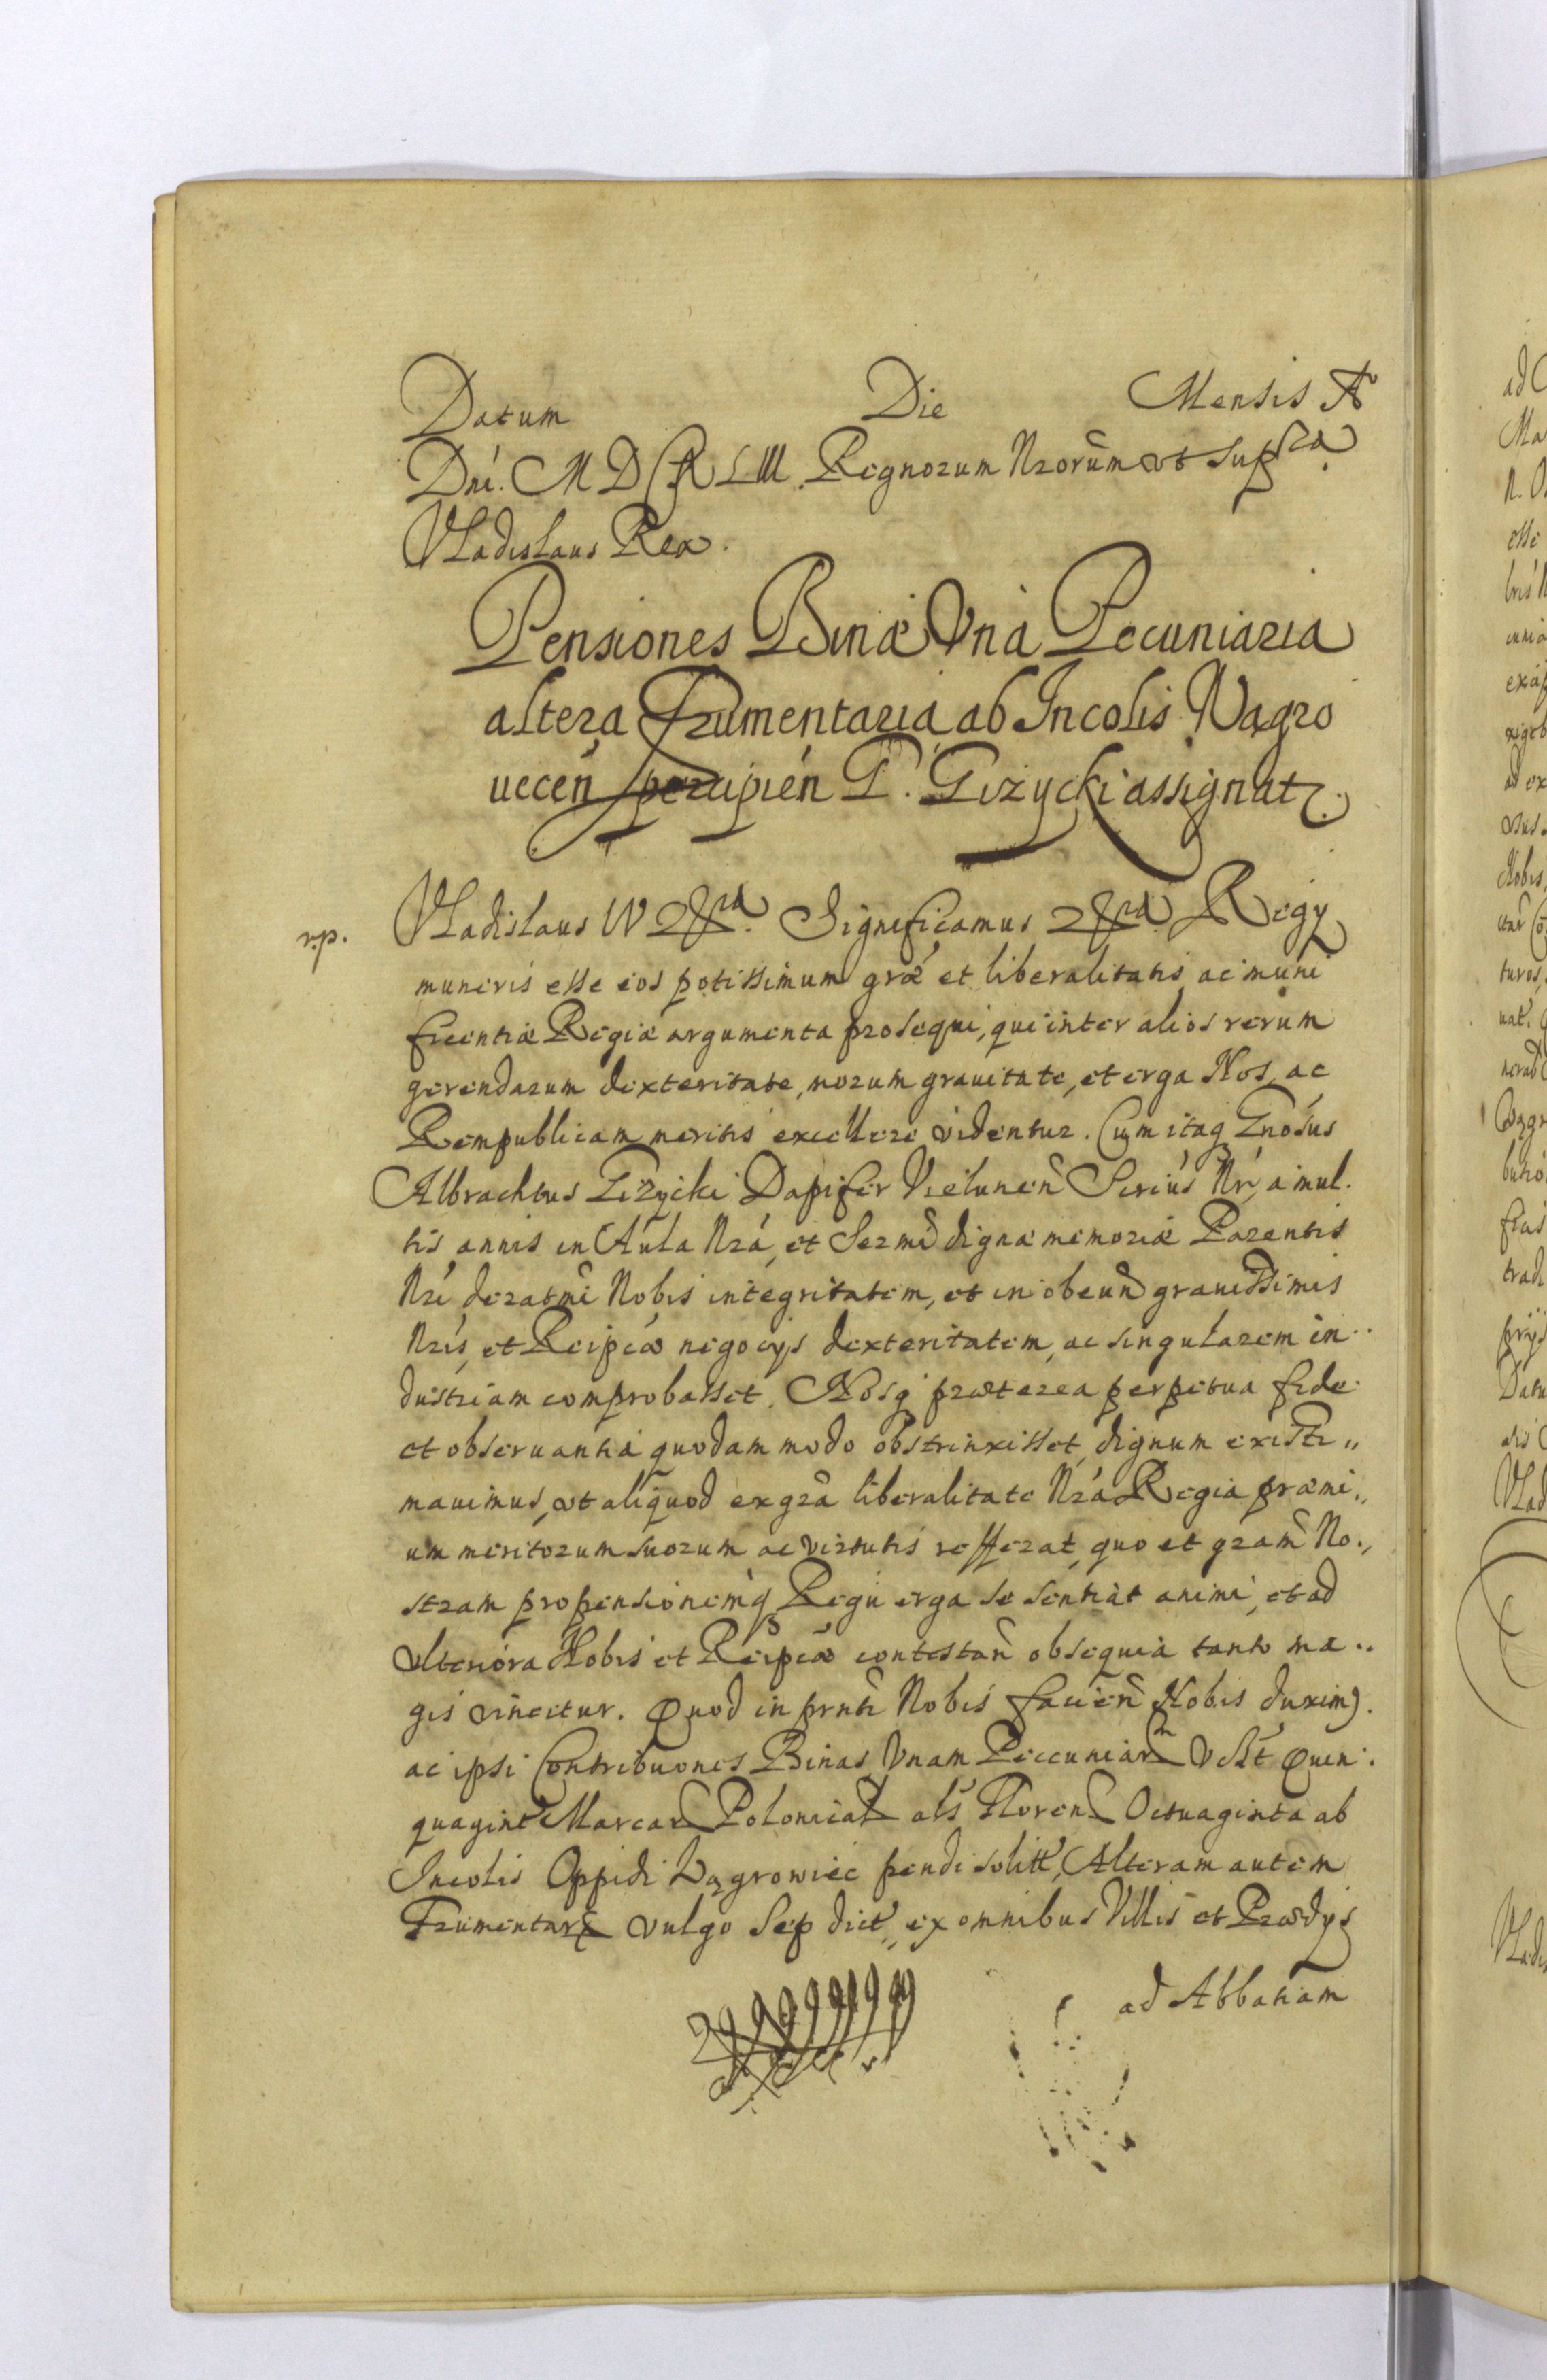 Datum Die Mensis Aᵒ
Dni. M D C X L III. Regnorum Nrorum ut supra
Vladislaus Rex.
Pensiones Binæ Vna Pecuniaria
altera Frumentaria ab Incolis Wagro
uecen percipien G. Gizycki assignatr.
r.p.
Vladislaus IV &ra. Significamus &ra. Regy
muneris esse eos potissimum græ et liberalitatis ac muni
ficentiæ Regiæ argumenta prosequi, qui inter alios rerum
gerendarum dexteritate, morum grauitate, et erga Nos, ac
Rempublicam meritis excellere videntur. Cum itaq Gnosus
Albrachtus Gizycki Dapifer Vielunen Seruus Nr, a mul.
tis annis in Aula Nra, et Sermi dignæ memoriæ Parentis
Nri deratmi Nobis integritatem, et in obeun grauissimis
Nris, et Reipcæ negocijs dexteritatem, ac singularem in..
dustriam comprobasset. Nosq præterea perpetua fide
et obseruantia quodam modo obstrinxisset, dignum existi„
mauimus, vt aliquod ex gra liberalitate Nra Regia præmi„
um meritorum suorum ac virtutis refferat, quo et gram No.,
stram propensionemq Regii erga se sentiat animi, et ad
vlteriora Nobis et Reipcæ contestan obsequia tanto ma..
gis vincitur. Quod in prnti Nobis facien Nobis duxim9.
ac ipsi Contribuones Binas, Vnam Peccuniarm Vsst Quin.
quagint Marcar Polonical als Floren Octuaginta ab
Incolis Oppidi Wągrowiec pendi solitt, Alteram autem
Frumentar vulgo Sep dict, ex omnibus Villis et Prædijs
ad Abbatiam